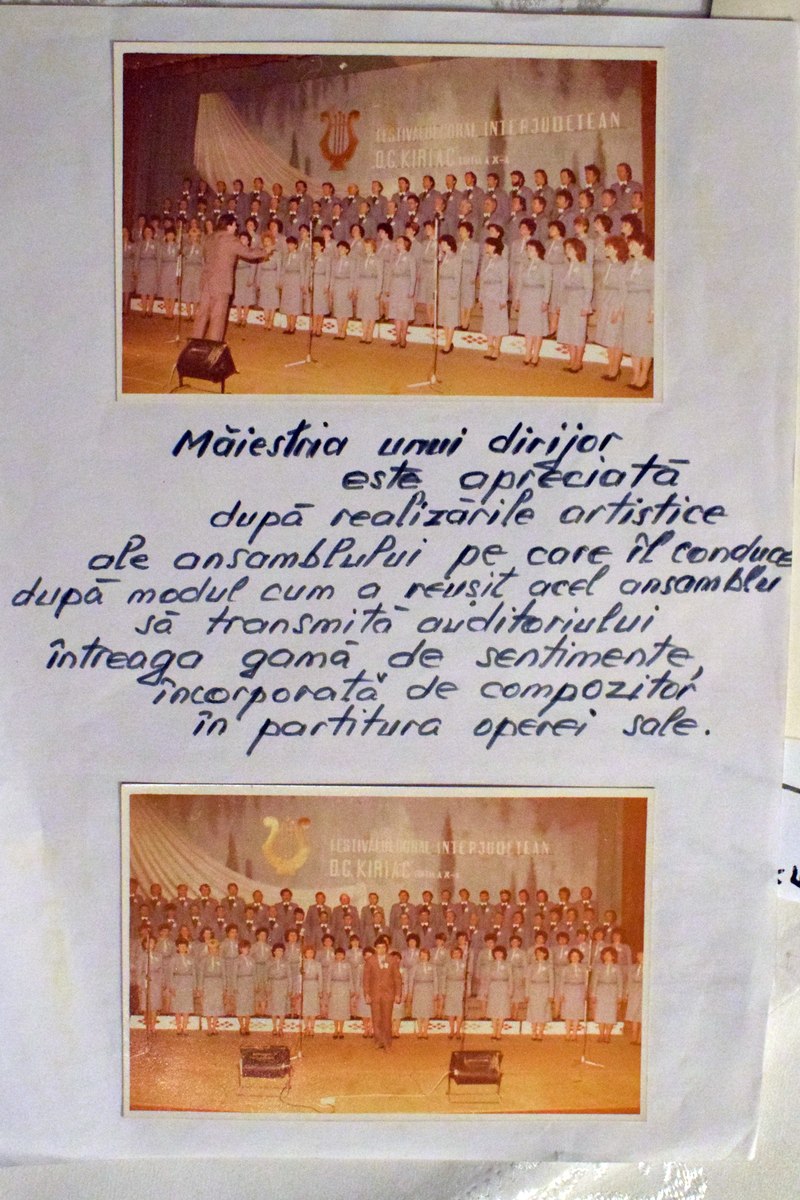 FESTIVALUL CORAL INTERJUDEȚEAN
"D.G. KIRIAC" EDIȚIA A X-A
Măiestria unui dirijor
este apreciată
după realizările artistice
ale ansamblului pe care îl conduce
după modul cum a reușit acel ansamblu
să transmită auditoriului
întreaga gamă de sentimente,
încorporată de compozitor
în partitura operei sale.
FESTIVALUL CORAL INTERJUDEȚEAN
"D.G. KIRIAC" EDIȚIA A X-A